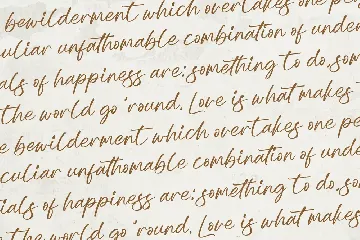 bewilderment which overtakes one pe
culiar unfathomable combination of under
ials of happiness are: something to do, som
the world go 'round. Love is what makes
e bewilderment which overtakes one pe
culiar unfathomable combination of unde
ials of happiness are: something to do, so
the world go 'round. Love is what makes